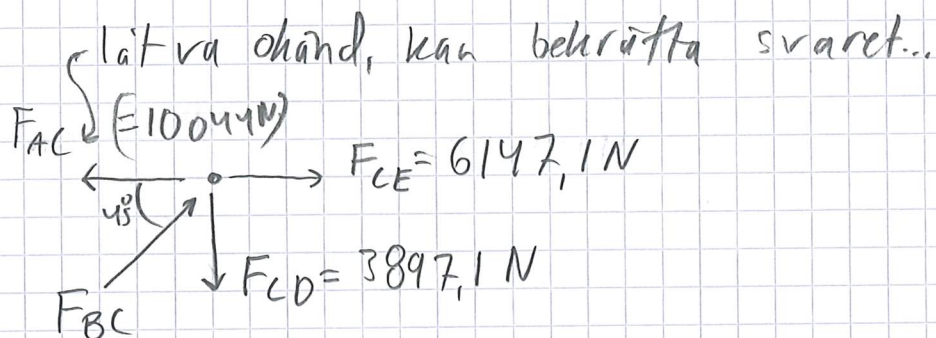 låt va okänd, kan bekräfta svaret...
F_AC (=10044N)
F_CE = 6147,1 N
45°
F_CD = 3897,1 N
F_BC